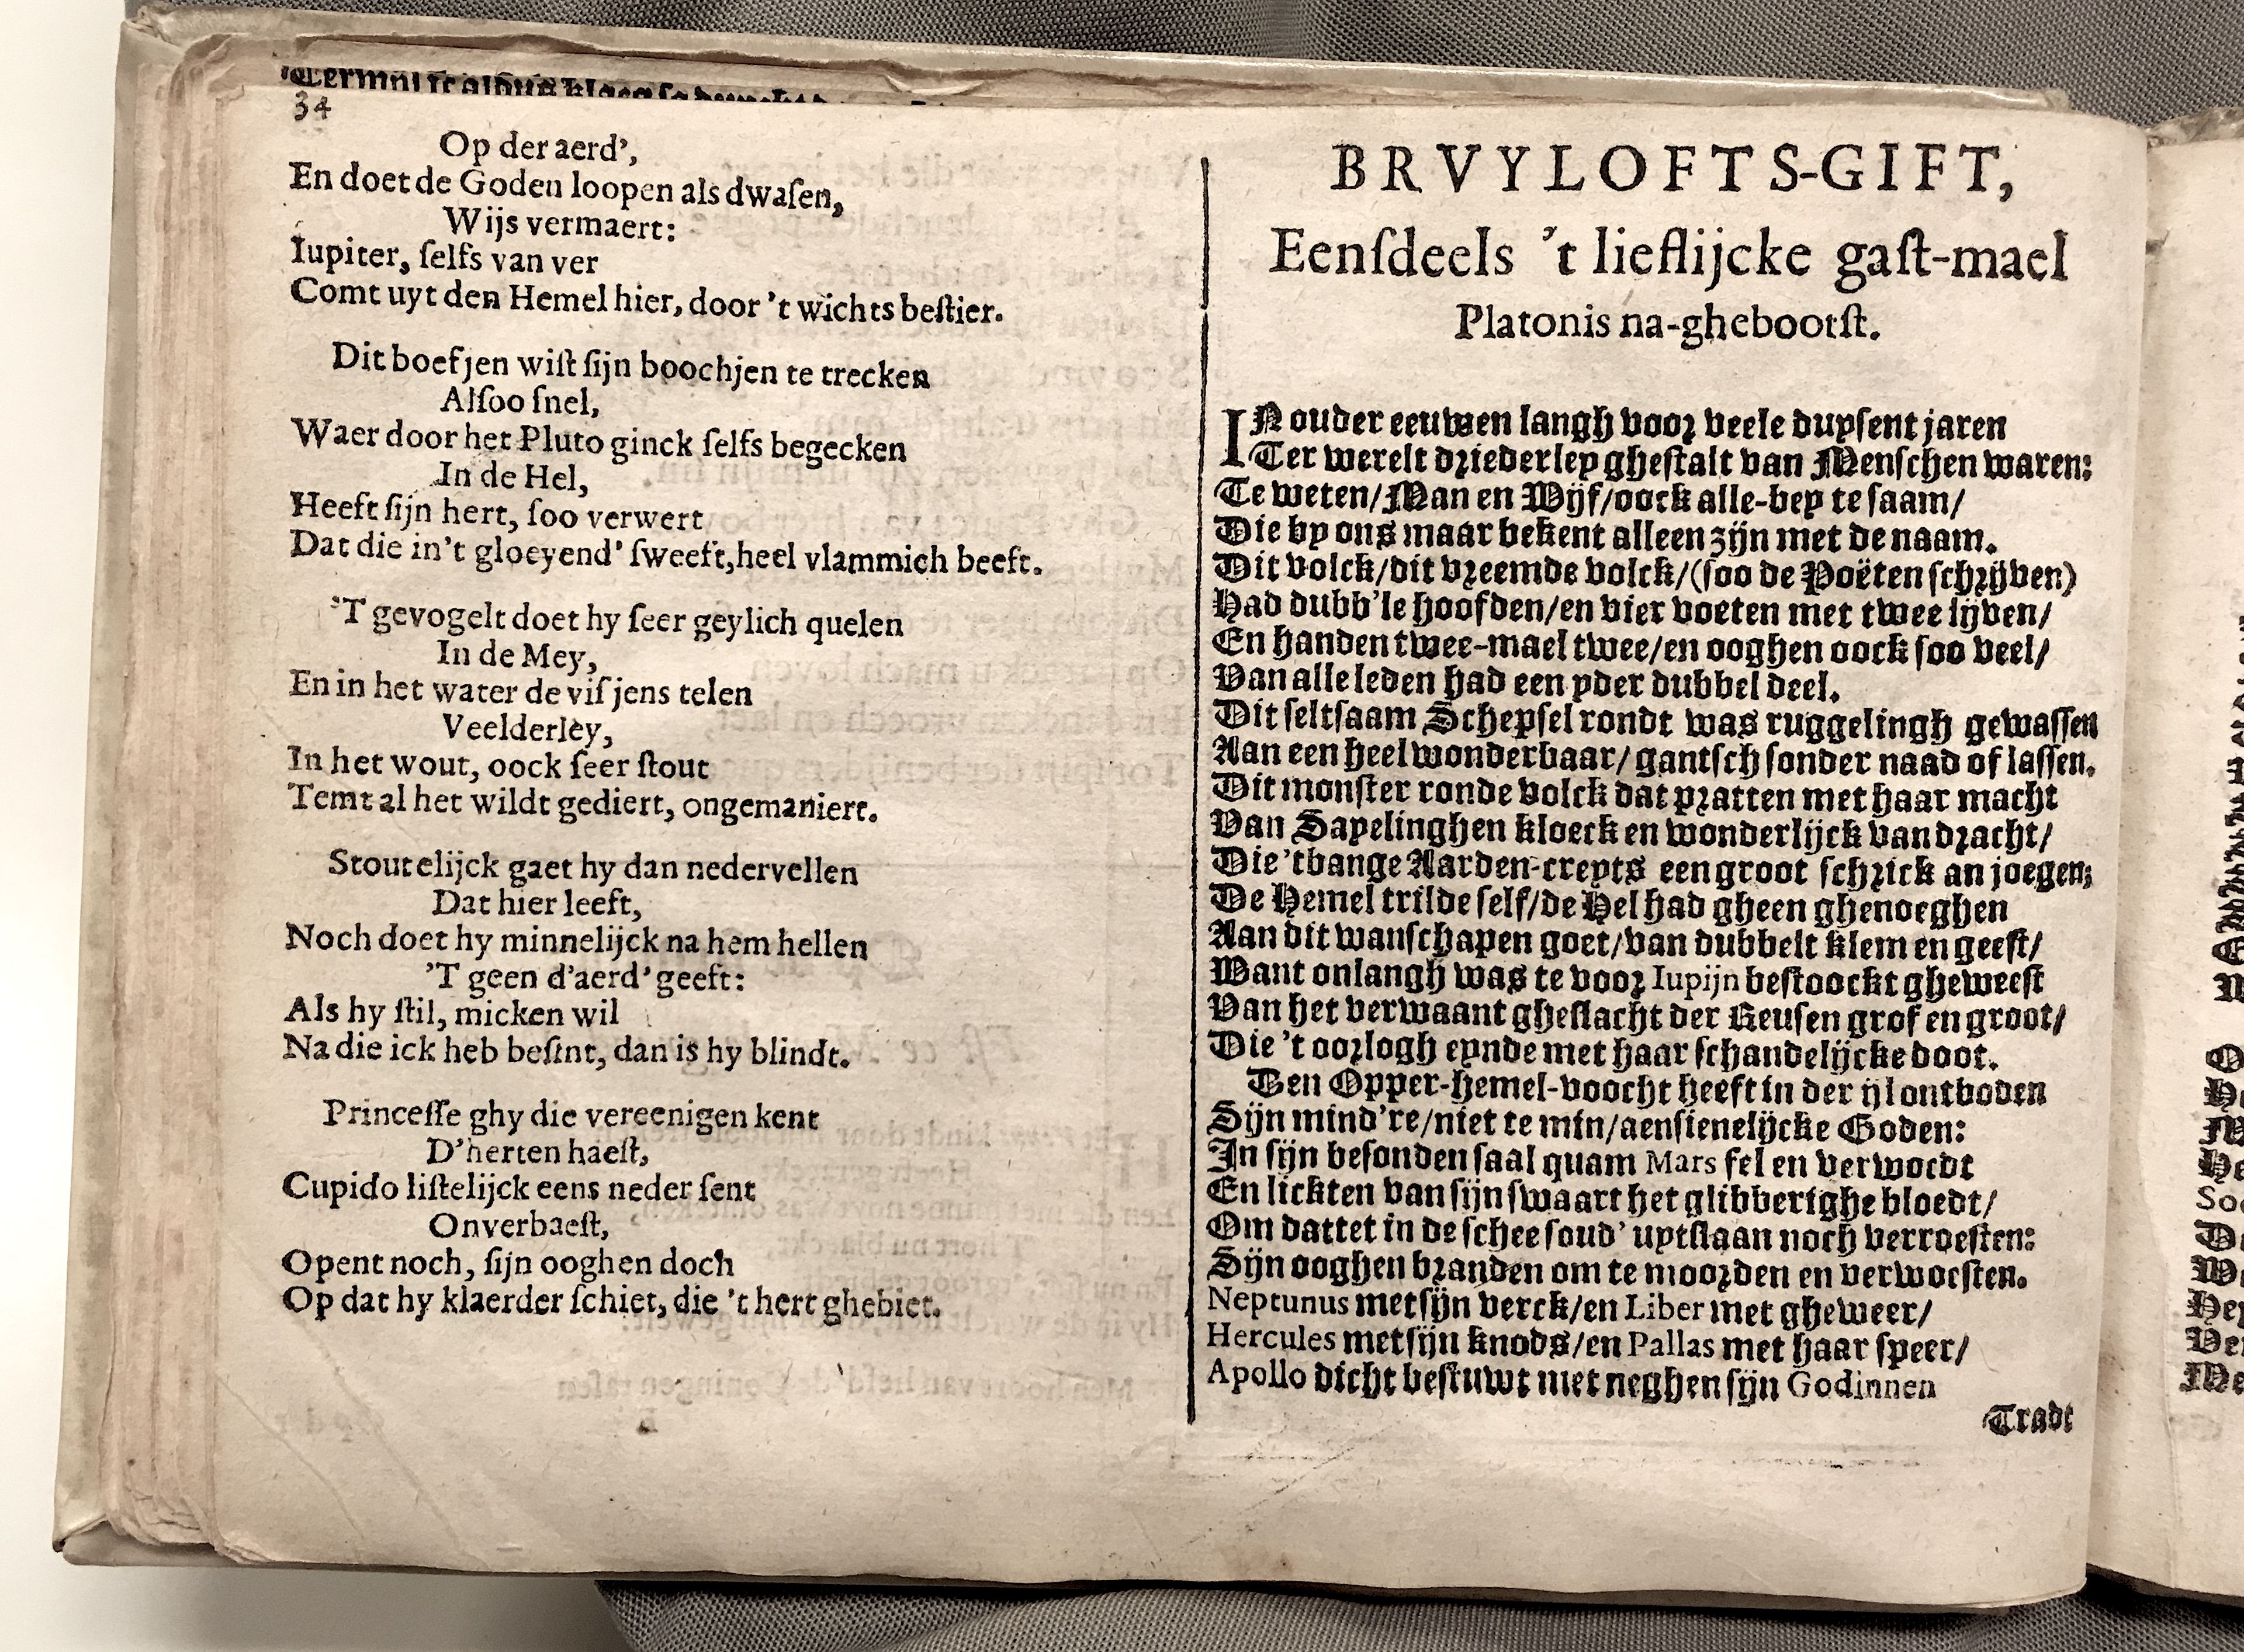 34
Op der aerd',
En doet de Goden loopen als dwaſen,
Wijs vermaert:
Iupiter, ſelfs van ver
Comt uyt den Hemel hier, door 't wichts beſtier.
Dit boefjen wiſt ſijn boochjen te trecken
Alſoo ſnel,
Waer door het Pluto ginck ſelfs begecken
In de Hel,
Heeft ſijn hert, ſoo verwert
Dat die in't gloeyend' ſweeft, heel vlammich beeft.
'T gevogelt doet hy ſeer geylich quelen
In de Mey,
En in het water de viſjens telen
Veelderley,
In het wout, oock ſeer ſtout
Temt al het wildt gediert, ongemaniert.
Stoutelijck gaet hy dan nedervellen
Dat hier leeft,
Noch doet hy minnelijck na hem hellen
'T geen d'aerd' geeft:
Als hy ſtil, micken wil
Na die ick heb beſint, dan is hy blindt.
Princeſſe ghy die vereenigen kent
D'herten haeſt,
Cupido liſtelijck eens neder ſent
Onverbaeſt,
Opent noch, ſijn ooghen doch
Op dat hy klaerder ſchiet, die 't hert ghebiet.
BRVYLOFTS-GIFT,
Eenſdeels 't lieflijcke gaſt-mael
Platonis na-ghebootſt.
IN ouder eeuwen langh voor veele duyſent jaren
Ter werelt driederley gheſtalt van Menſchen waren:
Te weten/Man en Wijf/oock alle-bey te ſaam/
Die by ons maar bekent alleen zijn met de naam.
Dit volck/dit vreemde volck/(ſoo de Poëten ſchrijven)
Had dubb'le hoofden/en vier voeten met twee lijven/
En handen twee-mael twee/en ooghen oock ſoo veel/
Van alle leden had een yder dubbel deel.
Dit ſeltſaam Schepſel rondt was ruggelingh gewaſſen
Aan een heel wonderbaar/ gantſch ſonder naad of laſſen.
Dit monſter ronde volck dat pratten met haar macht
Van Sapelinghen kloeck en wonderlijck van dracht/
Die 't bange Aarden-creyts een groot ſchrick an joegen;
De Hemel trilde ſelf/de Hel had gheen ghenoeghen
Aan dit wanſchapen goet/van dubbelt klem en geeſt/
Want onlangh was te voor Iupijn beſtoockt gheweeſt
Van het verwaant gheſlacht der Reuſen grof en groot/
Die 't oorlogh eynde met haar ſchandelijcke doot.
Den Opper-hemel-voocht heeft in der ijl ontboden
Sijn mind're/niet te min/aenſienelijcke Goden:
In ſijn beſonden ſaal quam Mars fel en verwoedt
En lickten van ſijn ſwaart het glibberighe bloedt/
Om dattet in de ſchee ſoud' uytſlaan noch verroeſten:
Sijn ooghen branden om te moorden en verwoeſten.
Neptunus met ſijn verck/en Liber met gheweer/
Hercules met ſijn knods/en Pallas met haar ſpeer/
Apollo dicht beſtuwt met neghen ſijn Godinnen
Tradt